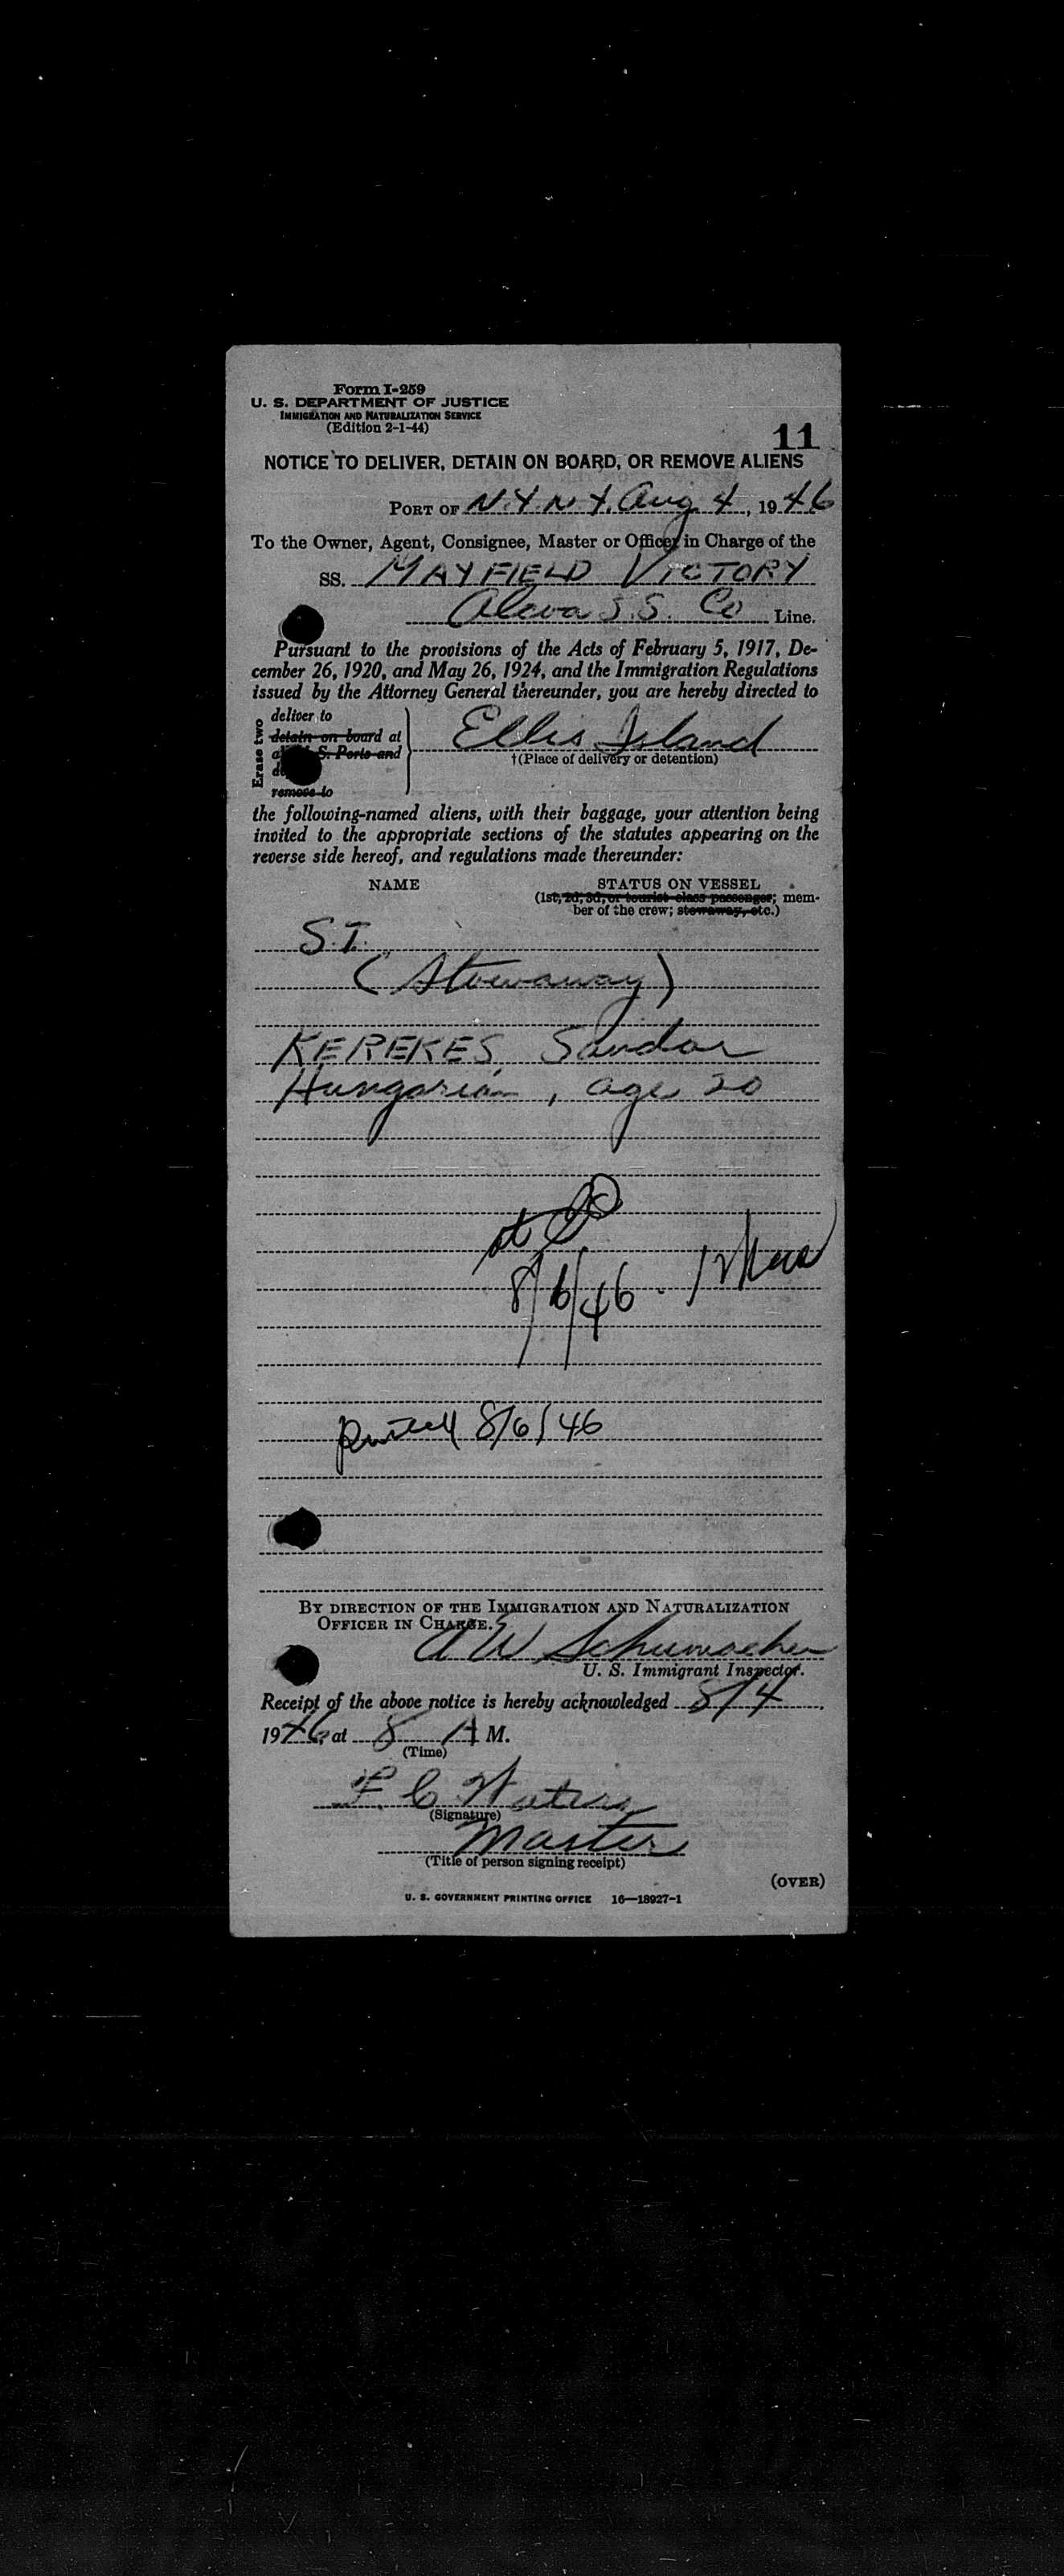 Form I-259
U. S. DEPARTMENT OF JUSTICE
IMMIGRATION AND NATURALIZATION SERVICE
(Edition 2-1-44)
11
NOTICE TO DELIVER, DETAIN ON BOARD, OR REMOVE ALIENS
PORT OF N.Y N.Y. Aug 4, 1946
To the Owner, Agent, Consignee, Master or Officer in Charge of the
SS. MAYFIELD VICTORY
S.S. Co Line.
Pursuant to the provisions of the Acts of February 5, 1917, De-
cember 26, 1920, and May 26, 1924, and the Immigration Regulations
issued by the Attorney General thereunder, you are hereby directed to
Erase two
deliver to
detain on board at
S. Ports and
remove to
Ellis Island
†(Place of delivery or detention)
the following-named aliens, with their baggage, your attention being
invited to the appropriate sections of the statutes appearing on the
reverse side hereof, and regulations made thereunder:
NAME STATUS ON VESSEL
(1st, 2d, 3d, or tourist class passenger; mem-
ber of the crew; stowaway, etc.)
S.I.
(Stowaway)
KEREKES, Sandor
Hungarian, age 20
8/6/46
8/6/46
BY DIRECTION OF THE IMMIGRATION AND NATURALIZATION
OFFICER IN CHARGE.
Schumacher
U. S. Immigrant Inspector.
Receipt of the above notice is hereby acknowledged 8/4,
1946, at 8 A M.
(Time)
Waters
(Signature)
Master
(Title of person signing receipt)
(OVER)
U. S. GOVERNMENT PRINTING OFFICE 16—18927-1